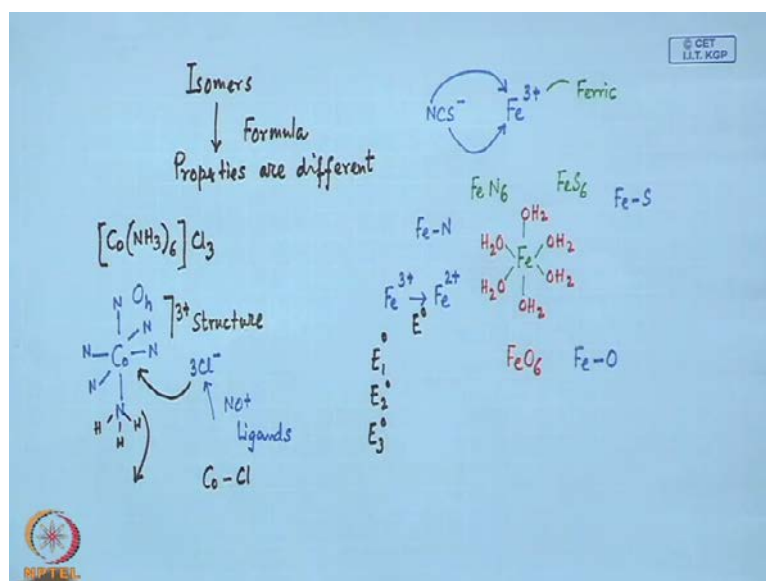 © CET
I.I.T. KGP
Isomers
Formula
Properties are different
[Co(NH3)6]Cl3
N Oh
N
N-Co-N
N
N
H H H
]3+ Structure
3Cl-
Ligands
Co-Cl
NCS- Fe3+ Ferric
FeN6 FeS6
Fe-N Fe-S
OH2
H2O Fe OH2
H2O OH2
OH2
Fe3+ → Fe2+
E0
E10
E20
E30
FeO6 Fe-O
NPTEL